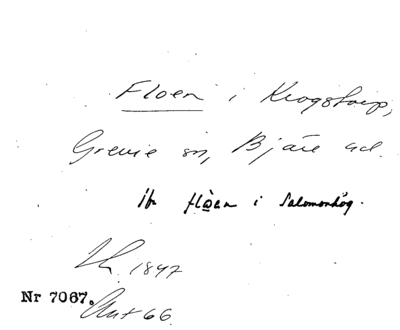 Floen i Krogstorp,
Grevie sn, Bjäre hd.
jfr flöen i Salomonhög.
1847
Nr 7067. Ant 66